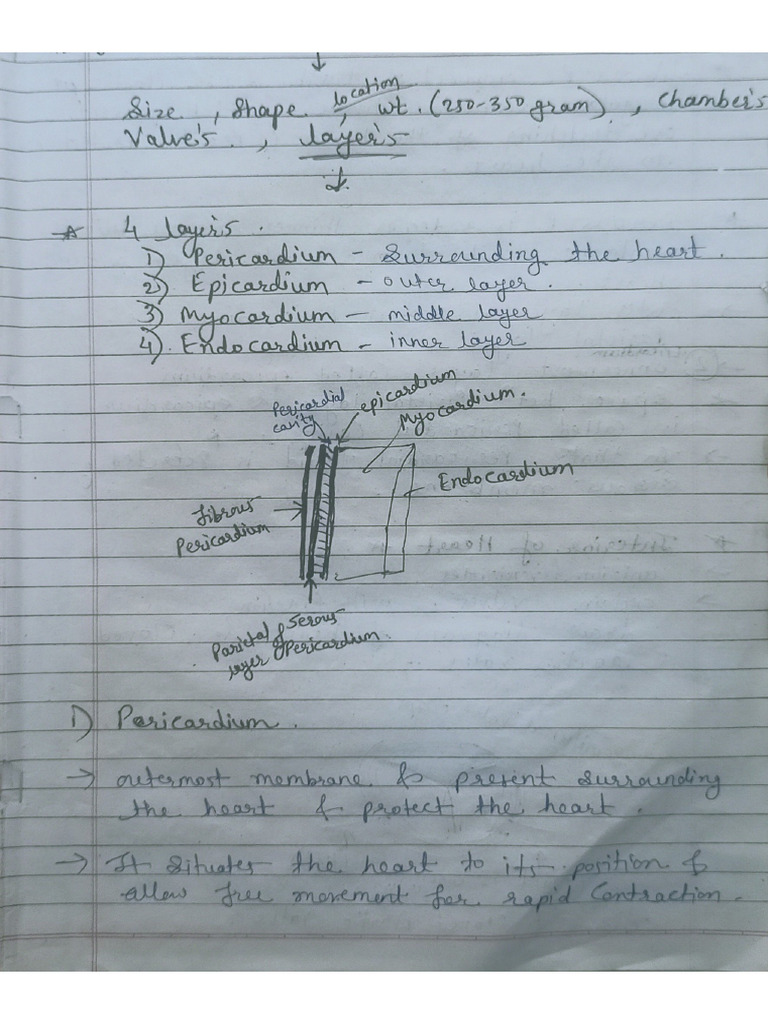 ↓
Size , Shape , location , wt. (250-350 gram) , Chamber's
Valve's , layer's
↓
4 layer's .
1) Pericardium - Surrounding the heart .
2) Epicardium - outer layer .
3) Myocardium - middle layer
4) Endocardium - inner layer
Pericardial
cavity
epicardium
Myocardium .
Endocardium
Fibrous
Pericardium
Parietal & Serous
layer of Pericardium .
1) Pericardium .
→ outermost membrane & present surrounding
the heart & protect the heart .
→ It situates the heart to its position &
allow free movement for rapid Contraction .